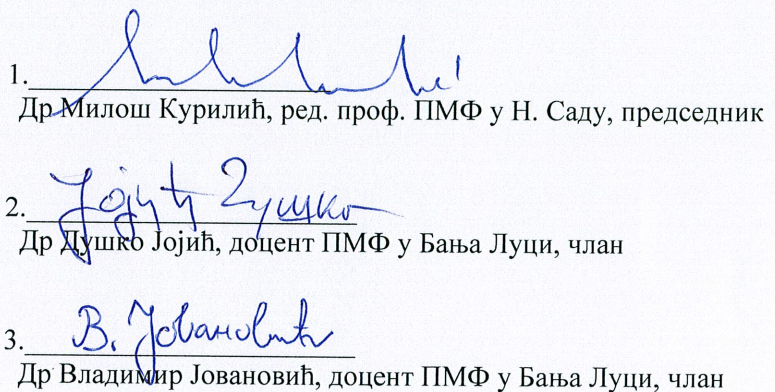 1.
Др Милош Курилић, ред. проф. ПМФ у Н. Саду, председник
2. Јојић Душко
Др Душко Јојић, доцент ПМФ у Бања Луци, члан
3. В. Јовановић
Др Владимир Јовановић, доцент ПМФ у Бања Луци, члан